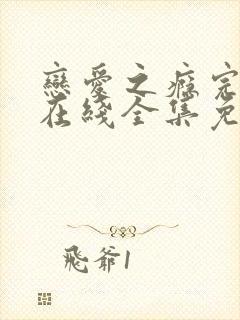 戀愛之癮完
在綫全集免
飛爺1